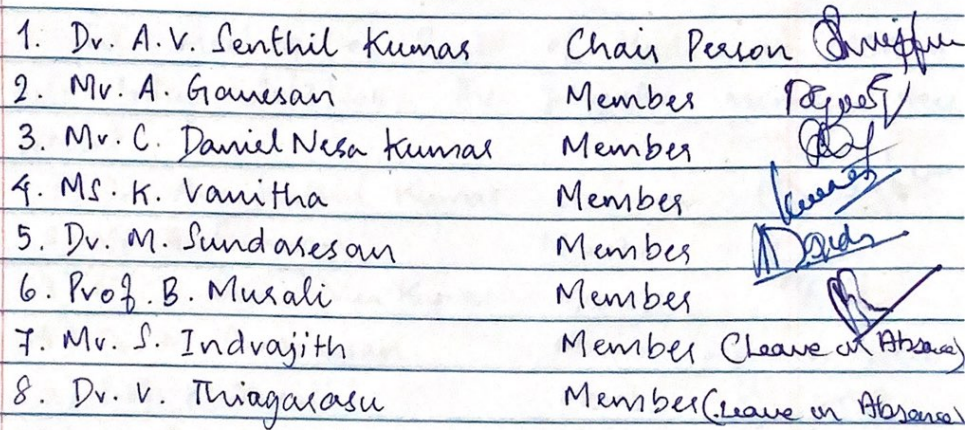 1. Dr. A.V. Senthil Kumar Chair Person
2. Mr. A. Ganesan Member
3. Mr. C. Daniel Nesa Kumar Member
4. Ms. K. Vanitha Member
5. Dr. M. Sundaresan Member
6. Prof. B. Murali Member
7. Mr. S. Indrajith Member (Leave in Absence)
8. Dr. V. Thiagarasu Member (Leave in Absence)